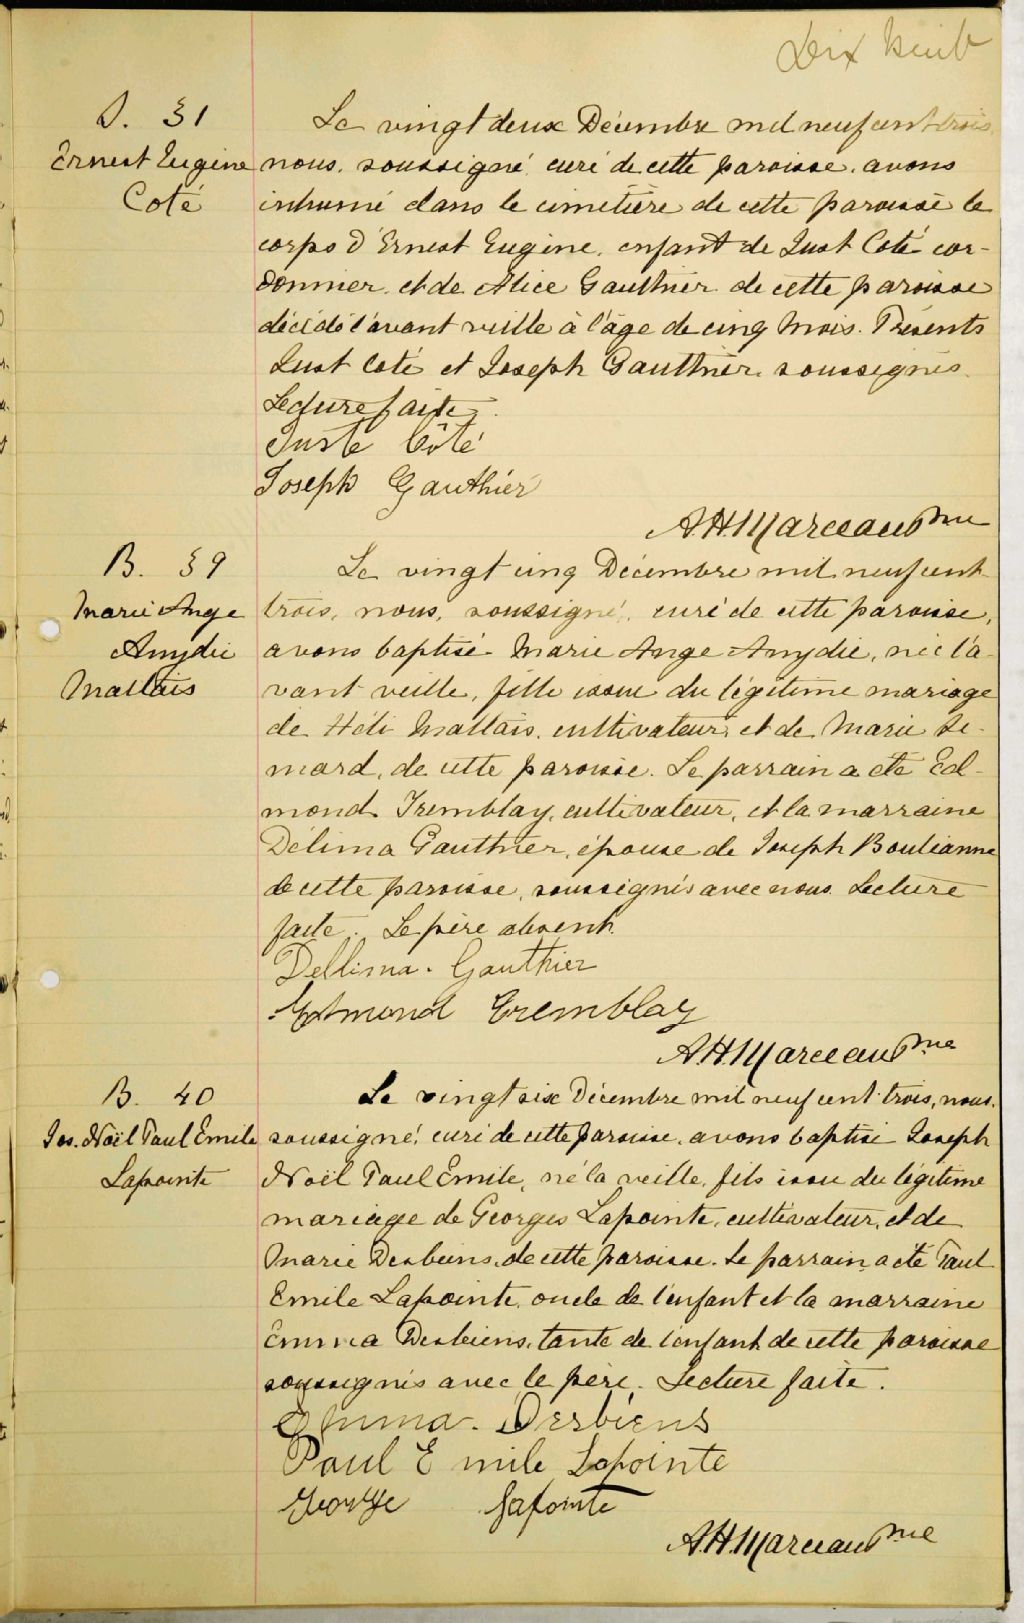 Dix neuf
S. 31
Ernest Eugène
Coté
Le vingt deux Décembre mil neuf cent trois,
nous, soussigné, curé de cette paroisse, avons
inhumé dans le cimetière de cette paroisse le
corps d'Ernest Eugène, enfant de Just Coté cor-
donnier, et de Alice Gauthier de cette paroisse
décédé l'avant veille à l'âge de cinq mois. Présents
Just Coté et Joseph Gauthier, soussignés.
Lecture faite.
Juste Côté
Joseph Gauthier
A.H. Marceau Ptre
B. 39
Marie Ange
Amydie
Maltais
Le vingt cinq Décembre mil neuf cent
trois, nous, soussigné, curé de cette paroisse,
avons baptisé Marie Ange Amydie, née l'a-
vant veille, fille issue du légitime mariage
de Héli Maltais, cultivateur, et de Marie Si-
mard, de cette paroisse. Le parrain a été Ed-
mond Tremblay, cultivateur, et la marraine
Délima Gauthier, épouse de Joseph Boulianne
de cette paroisse, soussignés avec nous. Lecture
faite. Le père absent.
Dellima Gauthier
Edmond Tremblay
A.H. Marceau Ptre
B. 40
Jos. Noël Paul Emile
Lapointe
Le vingt six Décembre mil neuf cent trois, nous,
soussigné, curé de cette paroisse, avons baptisé Joseph
Noël Paul Emile, né la veille, fils issu du légitime
mariage de Georges Lapointe, cultivateur, et de
Marie Desbiens, de cette paroisse. Le parrain a été Paul
Emile Lapointe, oncle de l'enfant et la marraine
Emma Desbiens, tante de l'enfant de cette paroisse
soussignés avec le père. Lecture faite.
Emma Desbiens
Paul Emile Lapointe
George Lapointe
A.H. Marceau Ptre